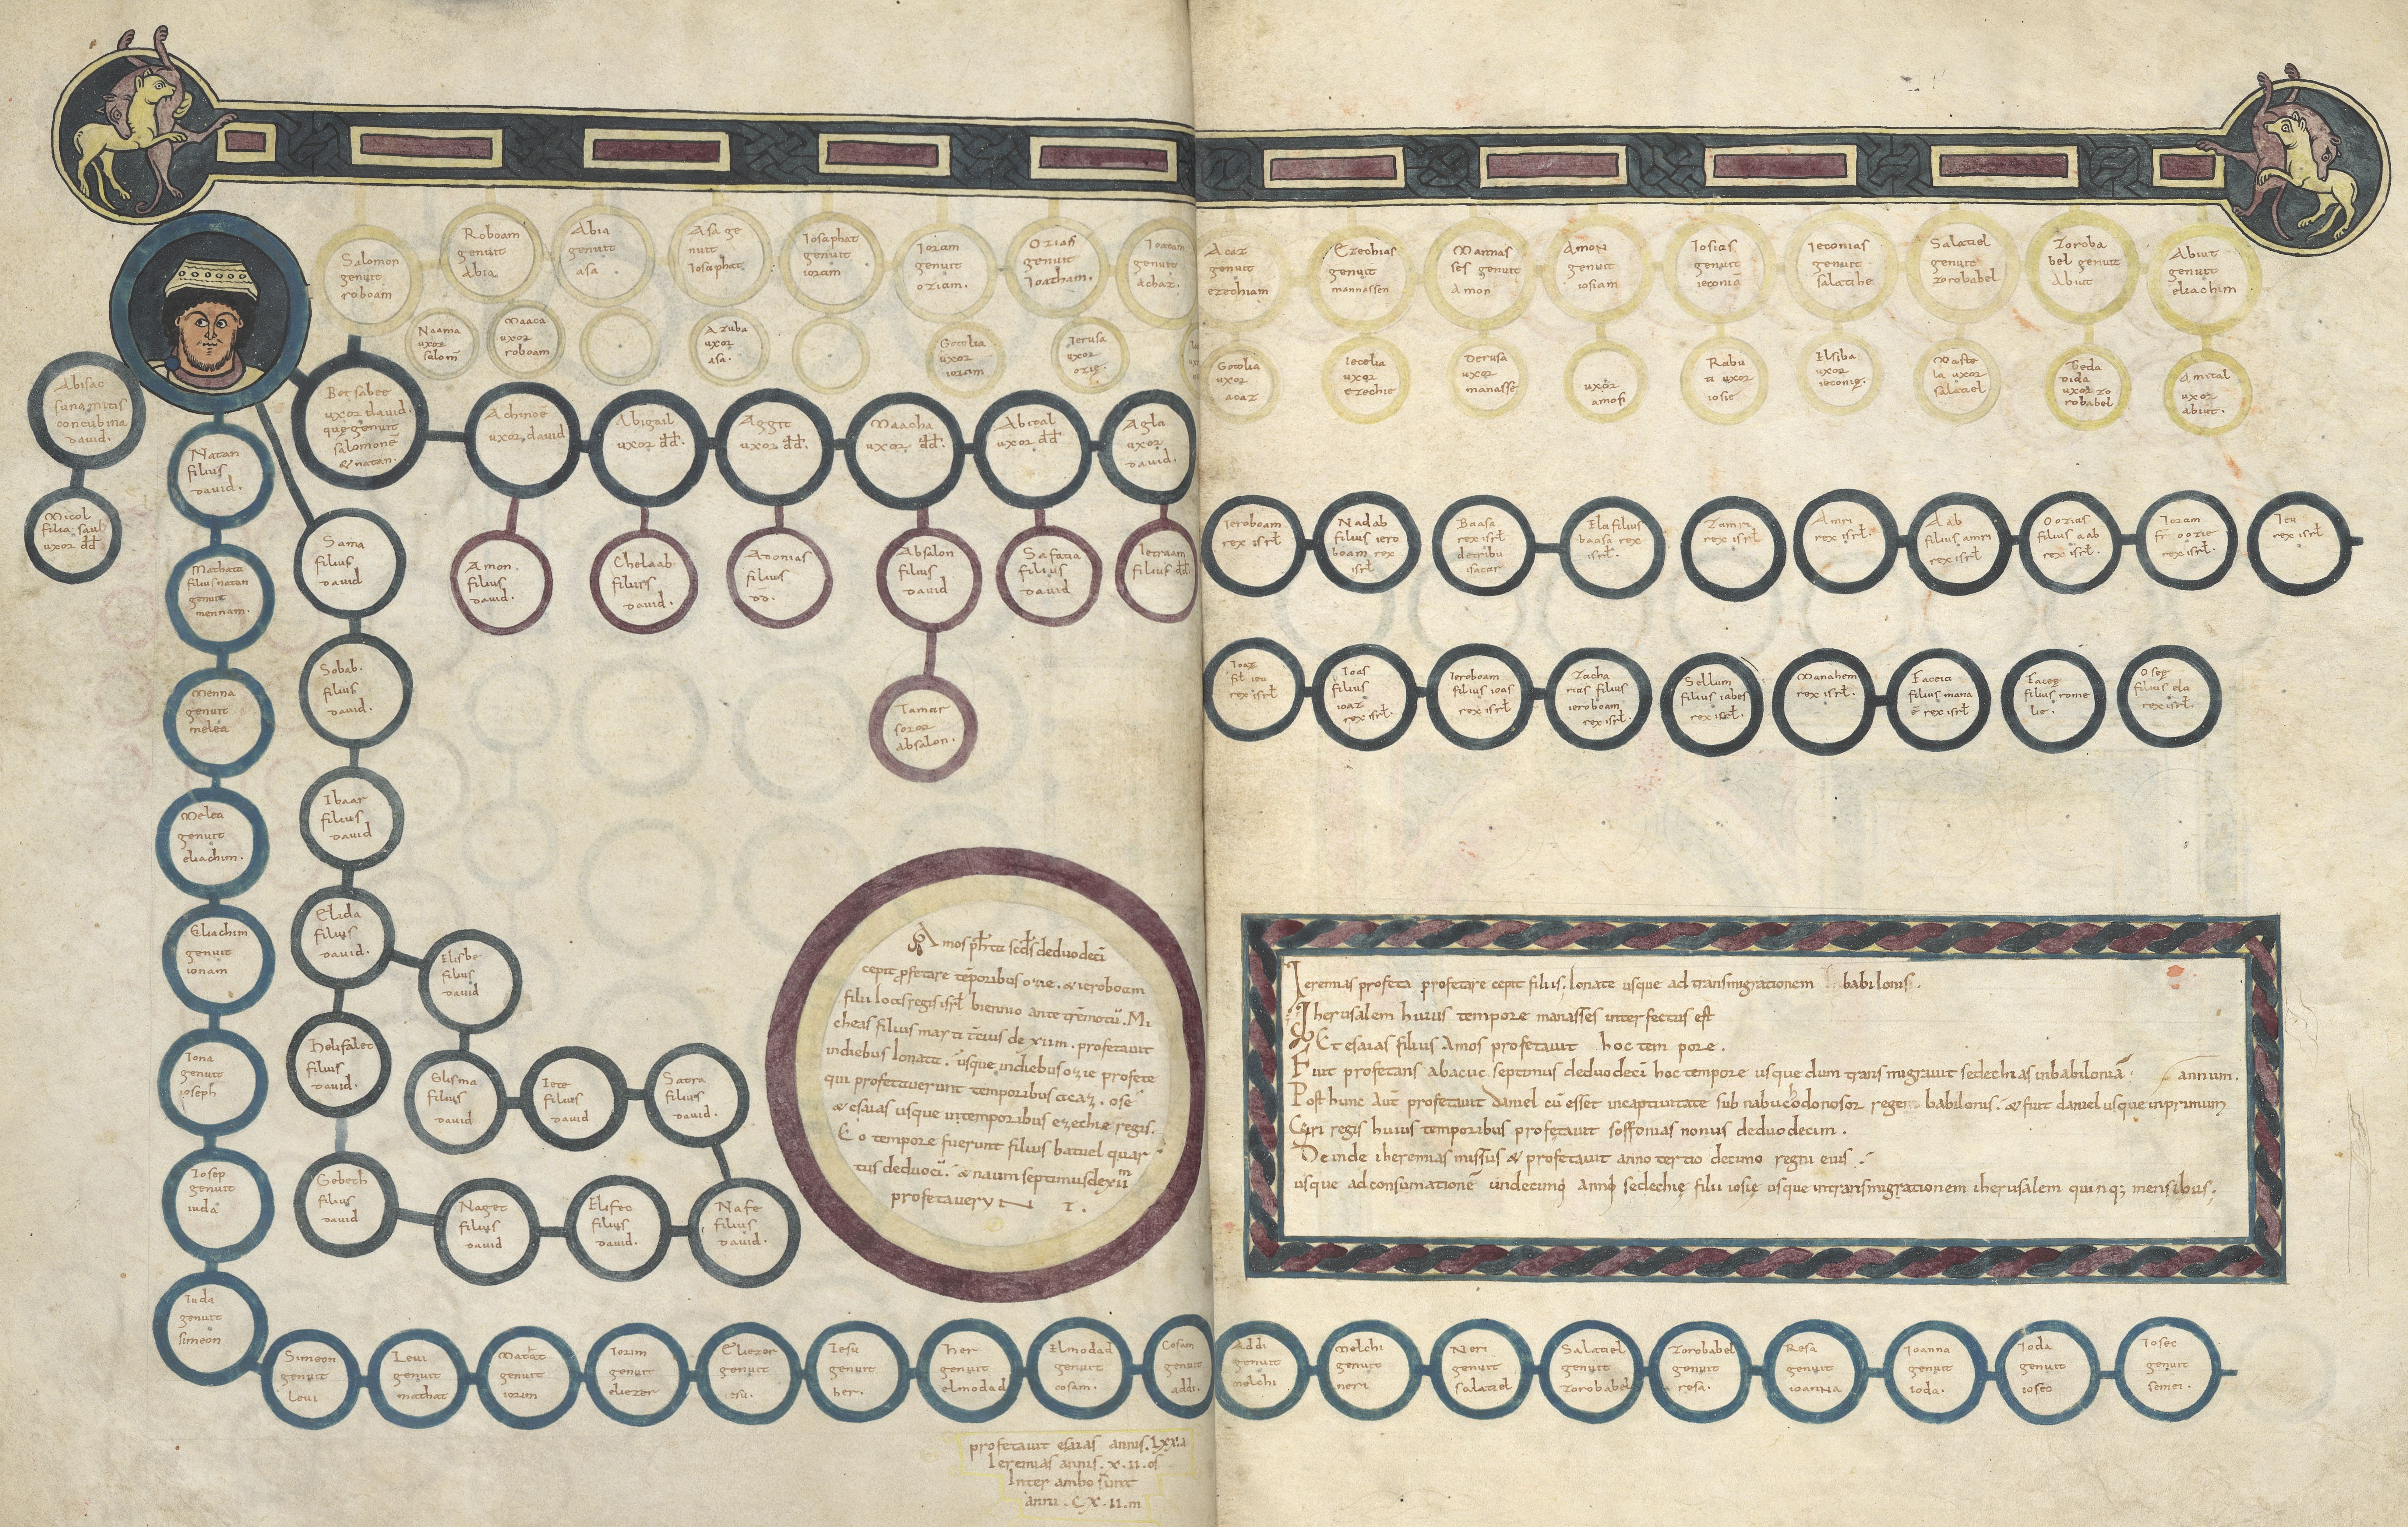 Salomon
genuit
roboam
Roboam
genuit
Abia
Abia
genuit
asa
Asa ge
nuit
Iosaphat
Iosaphat
genuit
ioram
Ioram
genuit
oziam.
Ozias
genuit
Ioatham.
Ioatam
genuit
achaz.
Acaz
genuit
ezechiam
Ezechias
genuit
mannassen
Mannas
ses genuit
Amon
Amon
genuit
iosiam
Iosias
genuit
ieconiā
Ieconias
genuit
salatihe
Salatiel
genuit
zorobabel
Zoroba
bel genuit
Abiut
Abiut
genuit
eliachim
Naama
uxor
salom̄
Maaca
uxor
roboam
Azuba
uxor
asa.
Gotolia
uxor
ioram
Ierusa
uxor
ozię.
Gotolia
uxor
acaz
Iecolia
uxor
ezechie
Derusa
uxor
manasse
uxor
amos
Rabu
ti uxor
iosię
Elsiba
uxor
ieconię.
Mafte
la uxor
salatiel
Beda
dida
uxor zo
robabel
Amital
uxor
abiut.
Abisac
sunamitis
concubina
david.
Micol
filia saul
uxor dd̄
Betsabee
uxor david.
que genuit
salomonē
& natan.
Achinoē
uxor david
Abigail
uxor dd̄.
Aggit
uxor dd̄.
Maacha
uxor dd̄.
Abital
uxor dd̄
Agla
uxor
david.
Amon.
filius
david.
Chelaab
filius
david.
Adonias
filius
dd̄.
Absalon
filius
david
Safatia
filius
david
Ietraam
filius dd̄
Tamar
soror
absalon.
Natan
filius
david.
Mathata
filius natan
genuit
mennam.
Menna
genuit
melea
Melea
genuit
eliachim.
Eliachim
genuit
ionam
Iona
genuit
ioseph
Iosep
genuit
iuda
Iuda
genuit
simeon
Sama
filius
david
Sobab.
filius
david.
Ibaar
filius
david
Elida
filius
david.
Elisbe
filius
david
Helifalet
filius
david.
Elisma
filius
david
Iete
filius
david
Satra
filius
david.
Gebeth
filius
david
Naget
filius
david
Elifeo
filius
david.
Nafe
filius
david.
Ieroboam
rex isrł
Nadab
filius iero
boam rex
isrł
Baasa
rex isrł
de tribu
isacar
Ela filius
baasa rex
isrł.
Zamri
rex isrł.
Amri
rex isrł.
Aab
filius amri
rex isrł.
Oozias
filius aab
rex isrł.
Ioram
fr̄ oozie
rex isrł.
Ieu
rex isrł.
Ioaz
fił ieu
rex isrł
Ioas
filius
ioaz
rex isrł.
Ieroboam
filius ioas
rex isrł
Zacha
rias filius
ieroboam
rex isrł.
Sellum
filius iabes
rex isrł.
Manahem
rex isrł.
Faceia
filius mana
ē rex isrł
Facee
filius rome
lie.
Oseę
filius ela
rex isrł.
Amos pħta scđs de duodeci
cepit p̄fetare tēporibus ozie. & ieroboam
filii Ioas regis isrł biennio ante t̄remotū. Mi
cheas filius marti t̄cius de xiim. profetauit
in diebus Ionate. usque in diebus ozie profete
qui profetauerunt temporibus acaz. ose
& esaias usque in temporibus ezechie regis.
Eo tempore fuerunt filius batuel quar
tus de duoci. & naum septimus de xiim
profetaverunt
Ieremias profeta profetare cepit filius. Ionate usque ad transmigrationem babilonis.
Iherusalem huius tempore manasses interfectus est
Et esaias filius Amos profetauit hoc tem pore.
Fuit profetans abacuc septimus de duodeci hoc tempore usque dum transmigrauit sedechias in babiloniā. annum.
Post hunc aut̄ profetauit daniel cū esset in captiuitate sub nabuchodonosor rege babilonis. & fuit daniel usque in primum
Ciri regis huius temporibus profetauit soffonias nonus de duodecim.
Deinde iheremias missus & profetauit anno tertio decimo regni eius
usque ad consumationē undecimo anno sedechię filii iosię usque in transmigrationem iherusalem quinq; mensibus.
Simeon
genuit
leui
Leui
genuit
mathat
Matat
genuit
iorim
Iorim
genuit
eliezer
Eliezer
genuit
iesu.
Iesu
genuit
her.
Her
genuit
elmodad
Elmodad
genuit
cosam.
Cosam
genuit
addi.
Addi
genuit
melchi
Melchi
genuit
neri
Neri
genuit
salatiel
Salatiel
genuit
zorobabel
Zorobabel
genuit
resa.
Resa
genuit
ioanna
Ioanna
genuit
ioda.
Ioda
genuit
iosec
Iosec
genuit
semei.
profetauit esaias annis. lxxa
Ieremias annis. x.ii.os
Inter ambo sunt
anni. Cx.ii.m